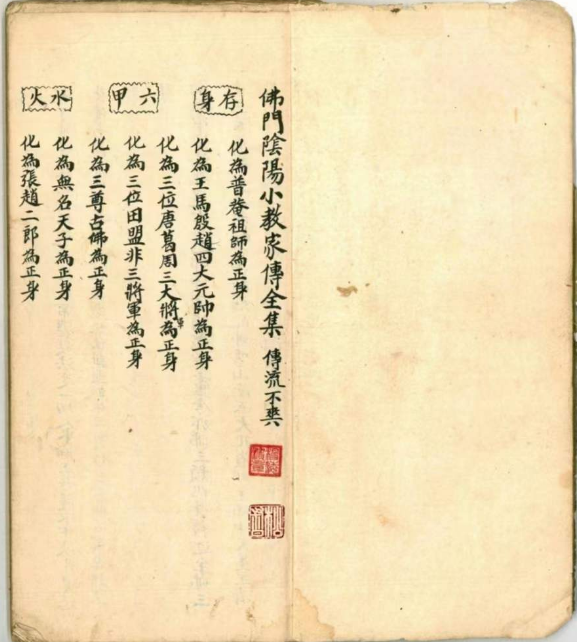 佛門陰陽小教家傳全集 傳流不𠔃
存身
化為普菴祖師為正身
化為王馬殷趙四大元帥為正身
六甲
化為三位唐葛周三大將為正身
化為三位田盟非三將軍為正身
化為三尊古佛為正身
水火
化為無名天子為正身
化為張趙二郎為正身